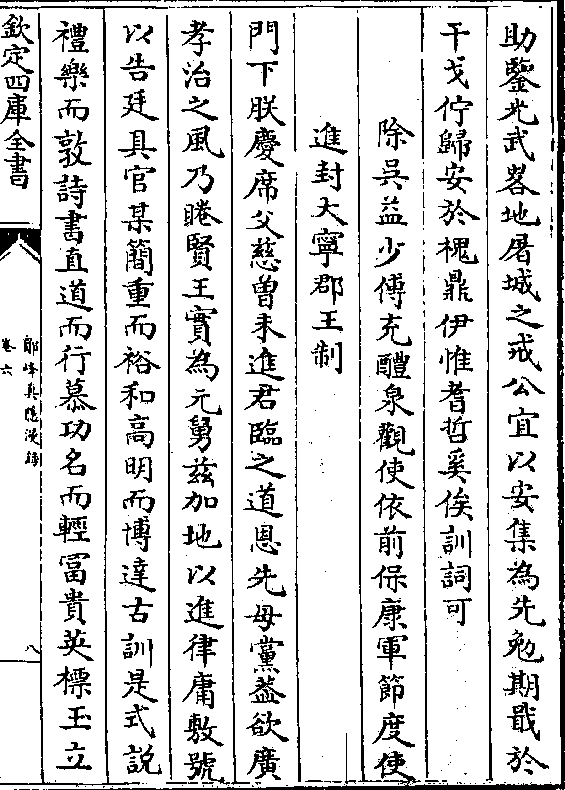 助鑒光武畧地屠城之戒公宜以安集為先勉期戢於
干戈佇歸安於槐鼎伊惟耆哲奚俟訓詞可
除吳益少傅充醴泉觀使依前保康軍節度使
進封大寧郡王制
門下朕慶席父慈曾未進君臨之道恩先母黨葢欲廣
孝治之風乃睠賢王實為元舅兹加地以進律庸敷號
以告廷具官某簡重而裕和高明而博達古訓是式説
禮樂而敦詩書直道而行慕功名而輕冨貴英標玉立
欽定四庫全書
鄮峰真隱漫録
卷六
八